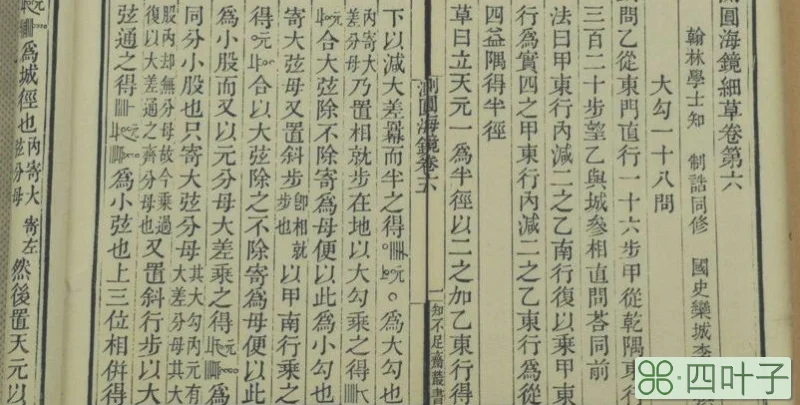 測圓海鏡細草卷第六
翰林學士知 制誥同修 國史欒城李
大勾一十八問
問乙從東門直行一十六步甲從乾隅東行
三百二十步望乙與城參相直問荅同前
法曰甲東行內減二之乙南行復以乘甲東
行為實四之甲東行內減二之乙東行為
四益隅得半徑
草曰立天元一為半徑以二之加乙東行得
測圓海鏡卷六
一知不足齋叢書
下以減大差冪而半之得 元 為大勾也
內寄大差分母乃置相就步在地以大勾乘之得
合大弦除不除寄為母便以此為小勾也
寄大弦母又置斜步 卽相就步也 以甲南行乘之
得 元 合以大弦除之不除寄為母便以此
為小股而又以元分母大差乘之得 元 為
同分小股也只寄大弦分母 其大勾內元有大差分母其大
股內却無分母故今乘過復以大差通之齊分母也 又置斜行步以大
弦通之得 為小弦也上三位相併得
元 為城徑也 內寄大弦分母 寄左 然後置天元以
四叶子